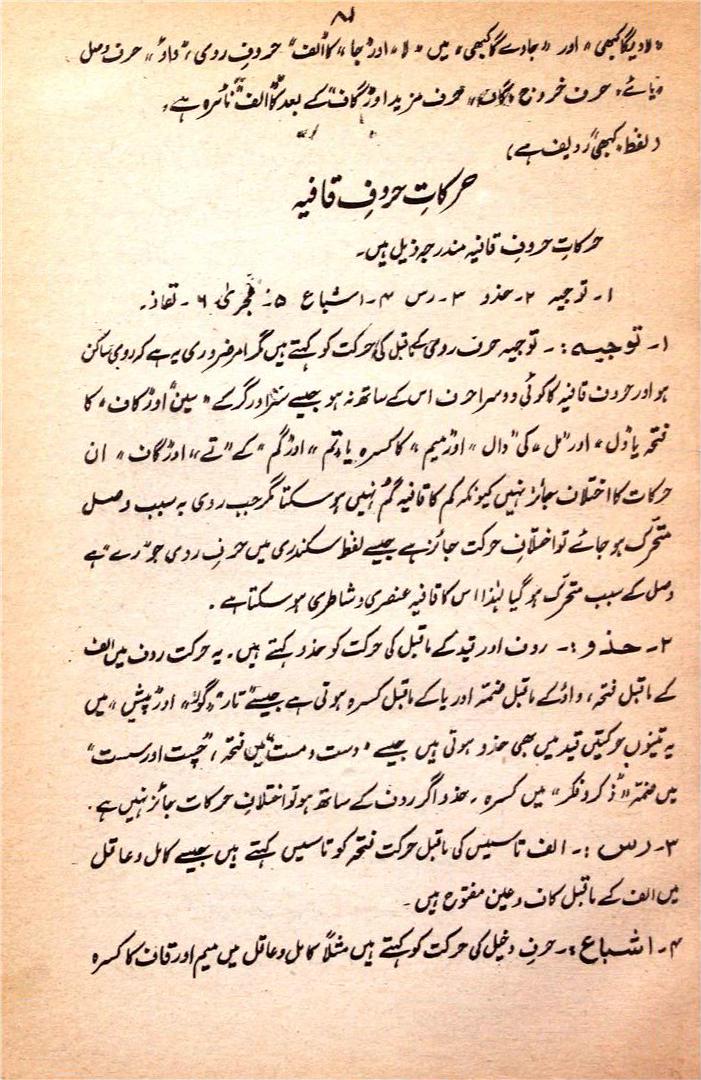 ۸۱
"لاوے گا کبھی" اور "جاوے گا کبھی" میں "لا" اور "جا" کا "الف" حروفِ روی، "واؤ" حرف وصل
"یائے" حرف خروج "گاف" حرف مزید اور "گاف" کے بعد کا "الف" نائرہ ہے،
(لفظ "کبھی" ردیف ہے)
حرکاتِ حروفِ قافیہ
حرکاتِ حروفِ قافیہ مندرجہ ذیل ہیں۔
۱۔ توجیہ ۲۔ حذو ۳۔ رس ۴۔ اشباع ۵۔ مجریٰ ۶۔ نفاذ۔
۱۔ توجیہ :۔ توجیہ حرف روی کے ماقبل کی حرکت کو کہتے ہیں مگر امر ضروری یہ ہے کہ روی ساکن
ہو اور حروف قافیہ کا کوئی دوسرا حرف اس کے ساتھ نہ ہو جیسے سر اور گر کے "سین" اور "گاف" کا
فتحہ یا "دل" اور "مل" کی "دال" اور "میم" کا کسرہ یا "تم" اور "گم" کے "تے" اور "گاف" ان
حرکات کا اختلاف جائز نہیں کیونکہ کم کا قافیہ گُم نہیں ہو سکتا مگر جب روی بہ سبب وصل
متحرّک ہو جائے تو اختلافِ حرکت جائز ہے جیسے لفظ سکندری میں حرفِ روی جو "رے" ہے
وصل کے سبب متحرّک ہو گیا لہٰذا اس کا قافیہ عنصری و شاطری ہو سکتا ہے۔
۲۔ حذو :۔ ردف اور قید کے ماقبل کی حرکت کو حذو کہتے ہیں۔ یہ حرکت ردف میں الف
کے ماقبل فتحہ، واؤ کے ماقبل ضمّہ اور یا کے ماقبل کسرہ ہوتی ہے جیسے "تار" "گور" اور "پیش" میں
یہ تینوں حرکتیں قید میں بھی حذو ہوتی ہیں جیسے "دست و مست" میں فتحہ، "چُست اور سست"
میں ضمّہ "ذکر و فکر" میں کسرہ۔ حذو اگر ردف کے ساتھ ہو تو اختلافِ حرکات جائز نہیں ہے۔
۳۔ رس :۔ الف تاسیس کی ماقبل حرکت فتحہ کو تاسیس کہتے ہیں جیسے کامل و عاقل
میں الف کے ماقبل کاف و عین مفتوح ہیں۔
۴۔ اشباع :۔ حرفِ دخیل کی حرکت کو کہتے ہیں مثلاً کامل و عاقل میں میم اور قاف کا کسرہ